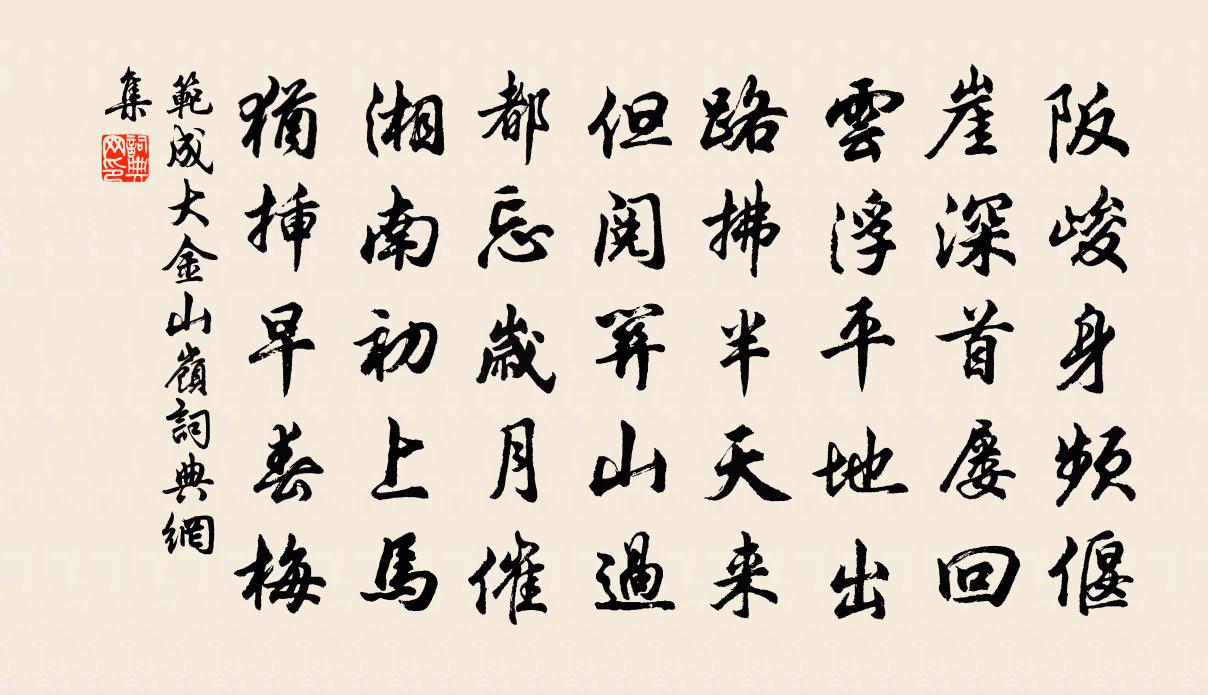 阪峻身頻偃
崖深首屢回
雲浮平地出
路拂半天来
但閱關山過
都忘歲月催
湘南初上馬
猶挿早春梅
範成大金山嶺詞典網
集
詞典網印